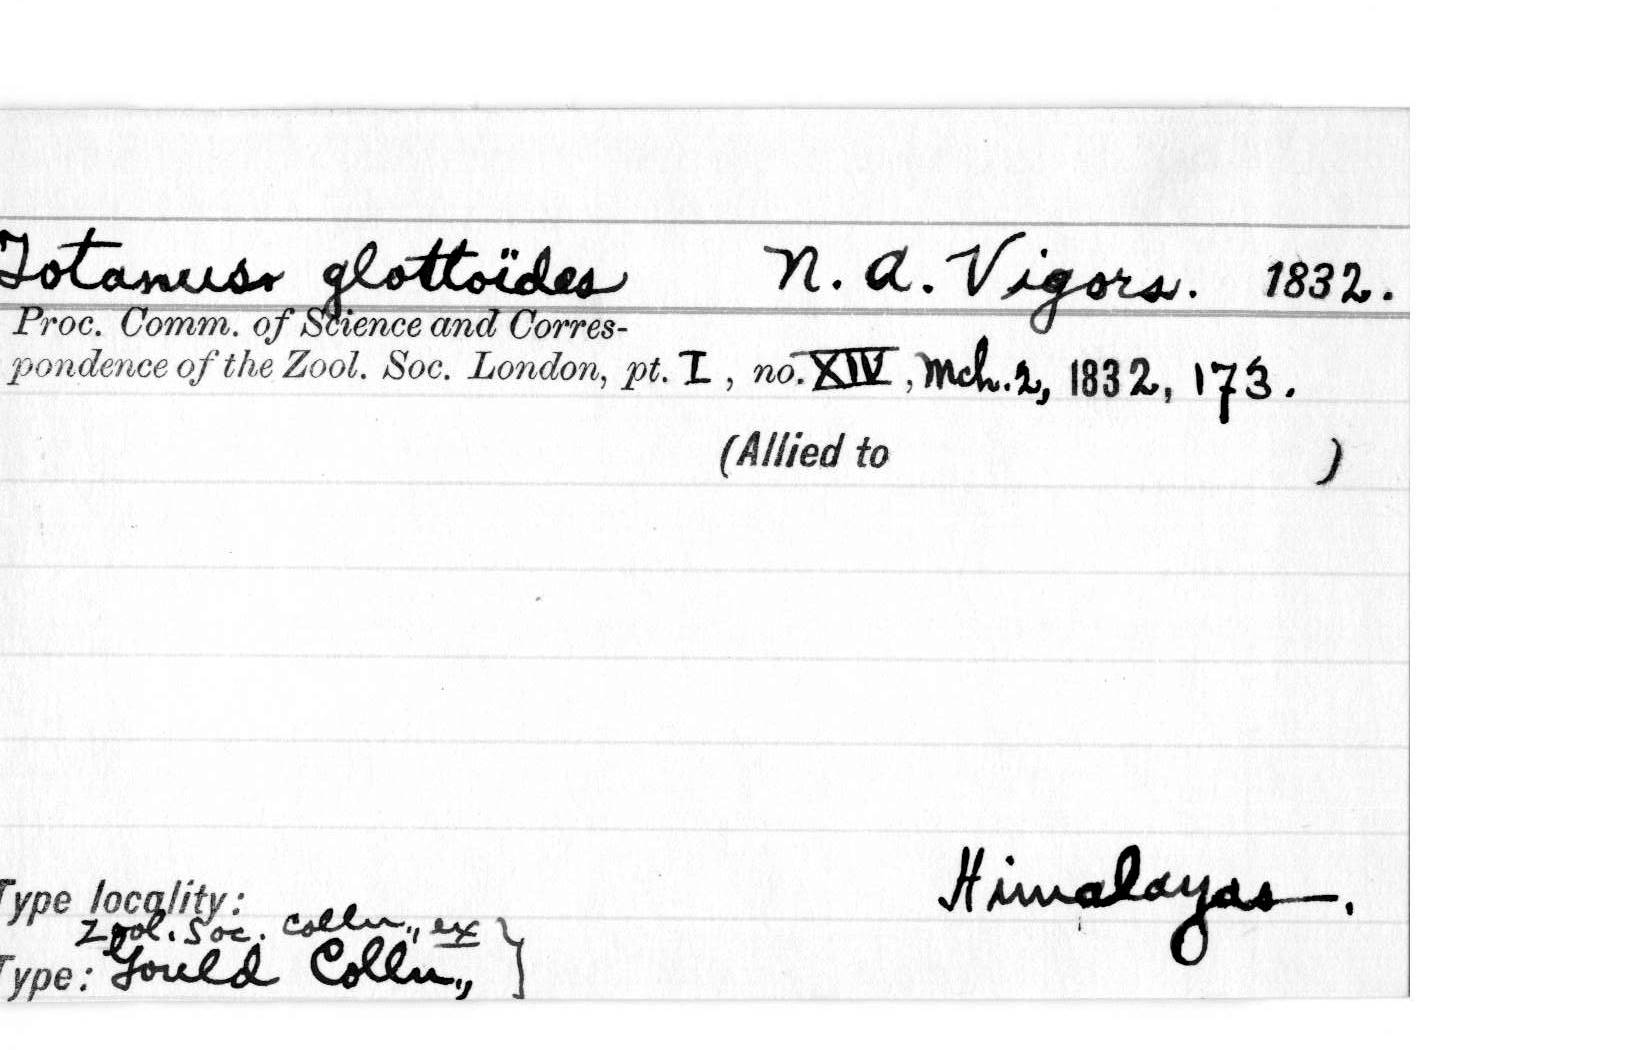 Totanus glottoïdes N. A. Vigors. 1832.
Proc. Comm. of Science and Corres-
pondence of the Zool. Soc. London, pt. I, no. XIV, Mch. 2, 1832, 173.
(Allied to )
Himalayas.
Type locality:
Zool. Soc. Colln., ex
Type: Gould Colln., }